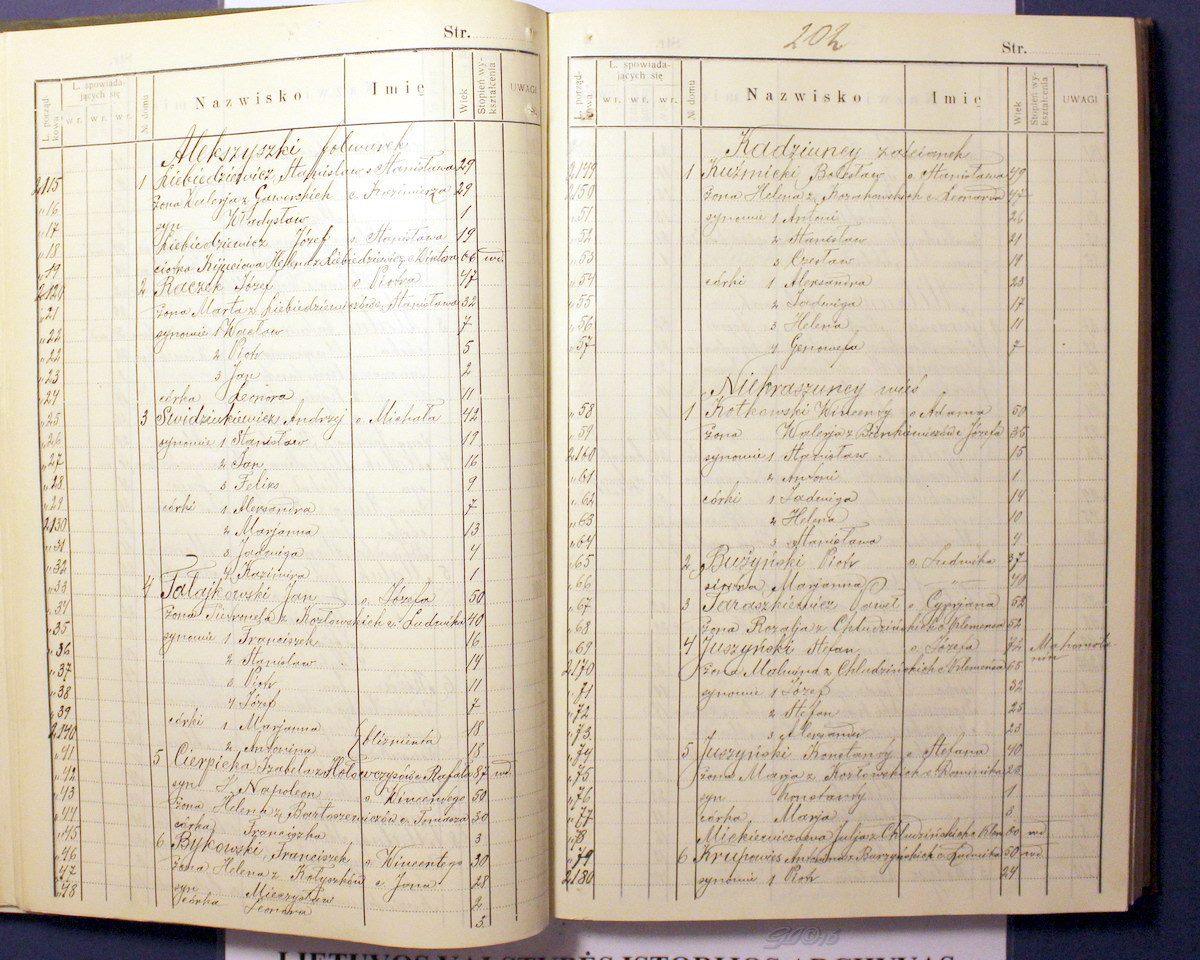 Str.
L. porząd-
kowa.
L. spowiada-
jących się
w r. w r. w r.
№ domu
Nazwisko
Imię
Wiek
Stopień wy-
kształcenia
UWAGI
Alekszyszki folwarek
2115 1 Liebiedziewicz Stanisław s. Stanisława 29
" 16 żona Walerja z Gawerskich c. Kazimierza 29
" 17 syn Władysław 1
" 18 Liebiedziewicz Józef s. Stanisława 19
" 19 ciotka Helena z Liebiedziewicz c. Wiktora 66 wd.
2120 2 Raczek Józef s. Piotra 47
" 21 żona Marta z Liebiedziewiczów c. Stanisława 32
" 22 synowie 1 Wacław 7
" 22 2 Piotr 5
" 23 3 Jan 2
" 24 córka Leonora 11
" 25 3 Swidzinkiewicz Andrzej s. Michała 42
" 26 synowie 1 Stanisław 19
" 27 2 Jan 16
" 28 3 Feliks 9
" 29 córki 1 Aleksandra 7
2130 2 Marjanna 13
" 31 3 Jadwiga 4
" 32 4 Kazimira 1
" 33 4 Tałajkowski Jan s. Józefa 50
" 34 żona Pietronela z Kozłowskich c. Ludwika 40
" 35 synowie 1 Franciszek 16
" 36 2 Stanisław 14
" 37 3 Piotr 11
" 38 4 Józef 7
" 39 córki 1 Marjanna 18
2140 2 Antonina bliźnienta 18
" 41 5 Cierpicka Izabela z Hołowczyców c. Rafała 87 wd
" 42 syn Napoleon s. Wincentego 50
" 43 żona Helena z Bartoszewiczów c. Tomasza 30
" 44 córka Franciszka 3
" 45 6 Bykowski Franciszek s. Wincentego 30
" 46 żona Helena z Kołyszków c. Jana 28
" 47 syn Mieczysław 2
" 48 córka Leonora 3
202
Str.
L. porząd-
kowa.
L. spowiada-
jących się
w r. w r. w r.
№ domu
Nazwisko
Imię
Wiek
Stopień wy-
kształcenia
UWAGI
Kadziuncy zaścianek
2149 1 Kuźmicki Bolesław s. Stanisława 49
2150 żona Helena z Kozakowskich c. Leonarda 47
" 51 synowie 1 Antoni 26
" 52 2 Stanisław 21
" 53 3 Czesław 19
" 54 córki 1 Aleksandra 23
" 55 2 Jadwiga 17
" 56 3 Helena 11
" 57 4 Genowefa 7
Niekraszuncy wieś
" 58 1 Kotkowski Wincenty s. Adama 50
" 59 żona Walerja z Bieńkiewiczów c. Józefa 36
2160 synowie 1 Stanisław 15
" 61 2 Antoni 1
" 62 córki 1 Jadwiga 14
" 63 2 Helena 10
" 64 3 Stanisława 4
" 65 2 Bużyński Piotr s. Ludwika 37
" 66 siostra Marjanna 40
" 67 3 Taraszkiewicz Paweł s. Cyprjana 52
" 68 żona Rozalja z Chludzińskich c. Klemensa 52
" 69 4 Juszyński Stefan s. Józefa 72 Mahometa
nin
2170 żona Malwina z Chludzińskich c. Klemensa 65
" 71 synowie 1 Józef 32
" 72 2 Stefan 25
" 73 3 Aleksander 23
" 74 5 Juszyński Konstanty s. Stefana 40
" 75 żona Marja z Kozłowskich c. Dominika 23
" 76 syn Konstanty 1
" 77 córka Marja 3
" 78 Mickiewiczowa Julja z Chludzińskich c. Klem 60 wd
" 79 6 Krupowies Antonina z Burzyńskich c. Ludwika 50 wd
2180 synowie 1 Piotr 24
GD©16
LIETUVOS VALSTYBĖS ISTORIJOS ARCHYVAS